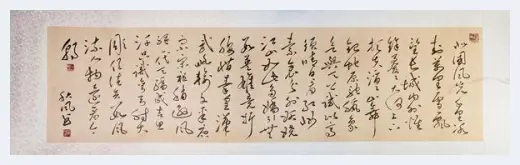 北国风光千里冰
封万里雪飘
望长城内外惟
馀莽莽大河上下
顿失滔滔山舞
银蛇原驰蜡象
欲与天公试比高
须晴日看红装
素裹分外妖娆
江山如此多娇引无
数英雄竞折
腰惜秦皇汉
武略输文采唐
宗宋祖稍逊风骚
一代天骄成吉思
汗只识弯弓射大
雕俱往矣数风
流人物还看今
朝